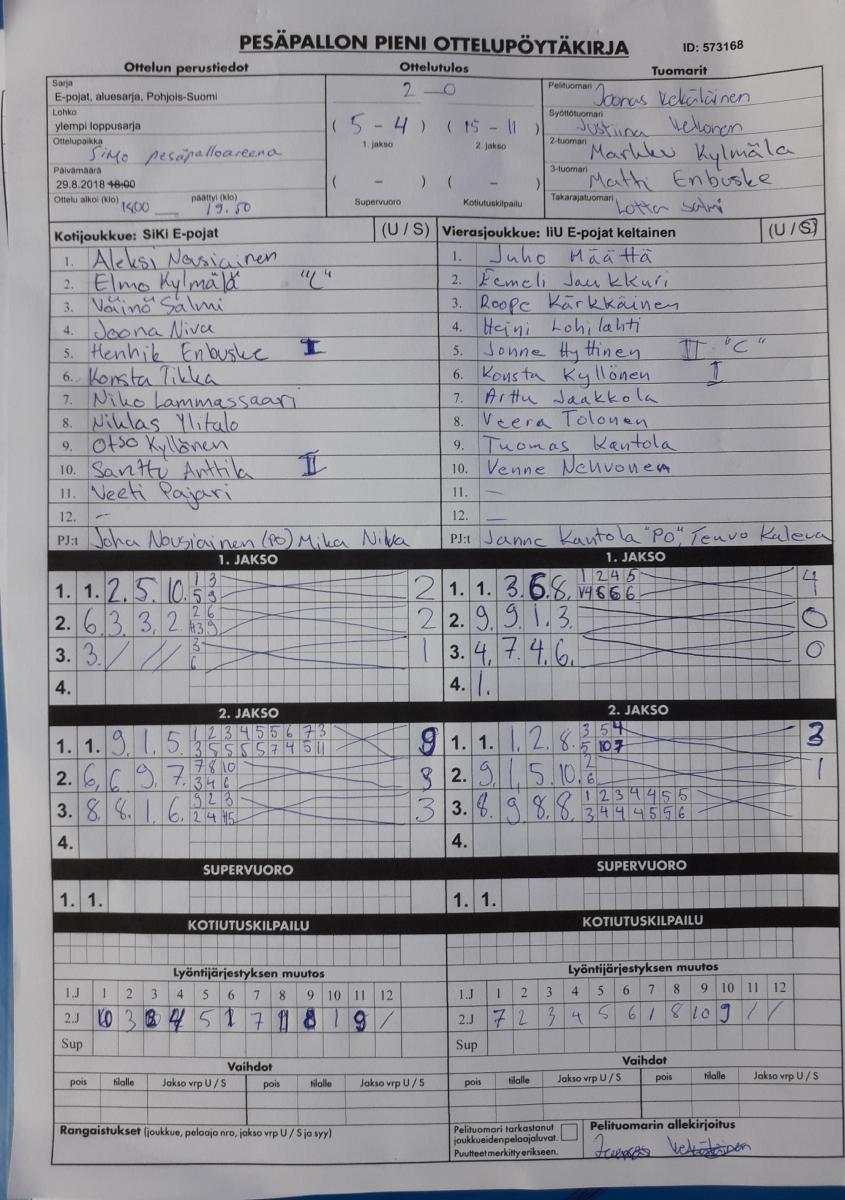 PESÄPALLON PIENI OTTELUPÖYTÄKIRJA ID: 573168
Ottelun perustiedot Ottelutulos Tuomarit
Sarja
E-pojat, aluesarja, Pohjois-Suomi
Lohko
ylempi loppusarja
Ottelupaikka
SiMo pesäpalloareena
Päivämäärä
29.8.2018 18:00
Ottelu alkoi (klo) 1800 päättyi (klo) 19.50
2 - 0
( 5 - 4 ) ( 15 - 11 )
1. jakso 2. jakso
( - ) ( - )
Supervuoro Kotiutuskilpailu
Pelituomari Joonas Kekäläinen
Syöttötuomari Justiina
2-tuomari Markku Kylmälä
3-tuomari Matti Enbuske
Takarajatuomari Lotta Salmi
Kotijoukkue: SiKi E-pojat (U / S)
1. Aleksi Nousiainen
2. Elmo Kylmälä "C"
3. Väinö Salmi
4. Joona Niva
5. Henrik Enbuske I
6. Konsta Tikka
7. Niko Lammassaari
8. Niklas Ylitalo
9. Otso Kyllönen
10. Santtu Anttila II
11. Veeti Pajari
12. -
PJ:t Juha Nousiainen (PO) Mika Niva
Vierasjoukkue: IiU E-pojat keltainen (U / S)
1. Juho Määttä
2. Eemeli Jaukkuri
3. Roope Kärkkäinen
4. Heini Lohilahti
5. Jonne Hyttinen II "C"
6. Konsta Kyllönen I
7. Arttu Jaakkola
8. Veera Tolonen
9. Tuomas Kantola
10. Venne Nehvonen
11. -
12. -
PJ:t Janne Kantola "PO", Teuvo Kaleva
1. JAKSO
1. 1. 2. 5. 10. 1 3 2
5 9
2. 6. 3. 3. 2. 2 6 2
3. 3. / / / 3 1
6
4.
1. JAKSO
1. 1. 3. 6. 8. 1 2 4 5 4
2. 9. 9. 1. 3. 0
3. 4. 7. 4. 6. 0
4. 1.
2. JAKSO
1. 1. 9. 1. 5. 1 2 3 4 5 5 6 7 3 9
3 5 5 5 5 7 4 5 11
2. 6. 6. 9. 7. 7 8 10 3
3 4 6
3. 8. 8. 1. 6. 9 2 3 3
2 4
4.
2. JAKSO
1. 1. 1. 2. 8. 3 5 4 3
5 10 7
2. 9. 1. 5. 10. 2 1
6
3. 8. 9. 8. 8. 1 2 3 4 4 4 5 5
3 4 4 4 4 5 5 6
4.
SUPERVUORO
1. 1.
SUPERVUORO
1. 1.
KOTIUTUSKILPAILU
KOTIUTUSKILPAILU
Lyöntijärjestyksen muutos
1.J 1 2 3 4 5 6 7 8 9 10 11 12
2.J 10 3 2 4 5 1 7 11 8 1 9 /
Sup
Lyöntijärjestyksen muutos
1.J 1 2 3 4 5 6 7 8 9 10 11 12
2.J 7 2 3 4 5 6 1 8 10 9 / /
Sup
Vaihdot
pois tilalle Jakso vrp U / S pois tilalle Jakso vrp U / S
Vaihdot
pois tilalle Jakso vrp U / S pois tilalle Jakso vrp U / S
Rangaistukset (joukkue, pelaaja nro, jakso vrp U / S ja syy)
Pelituomari tarkastanut
joukkueiden pelaajaluvat.
Puutteet merkitty erikseen.
Pelituomarin allekirjoitus